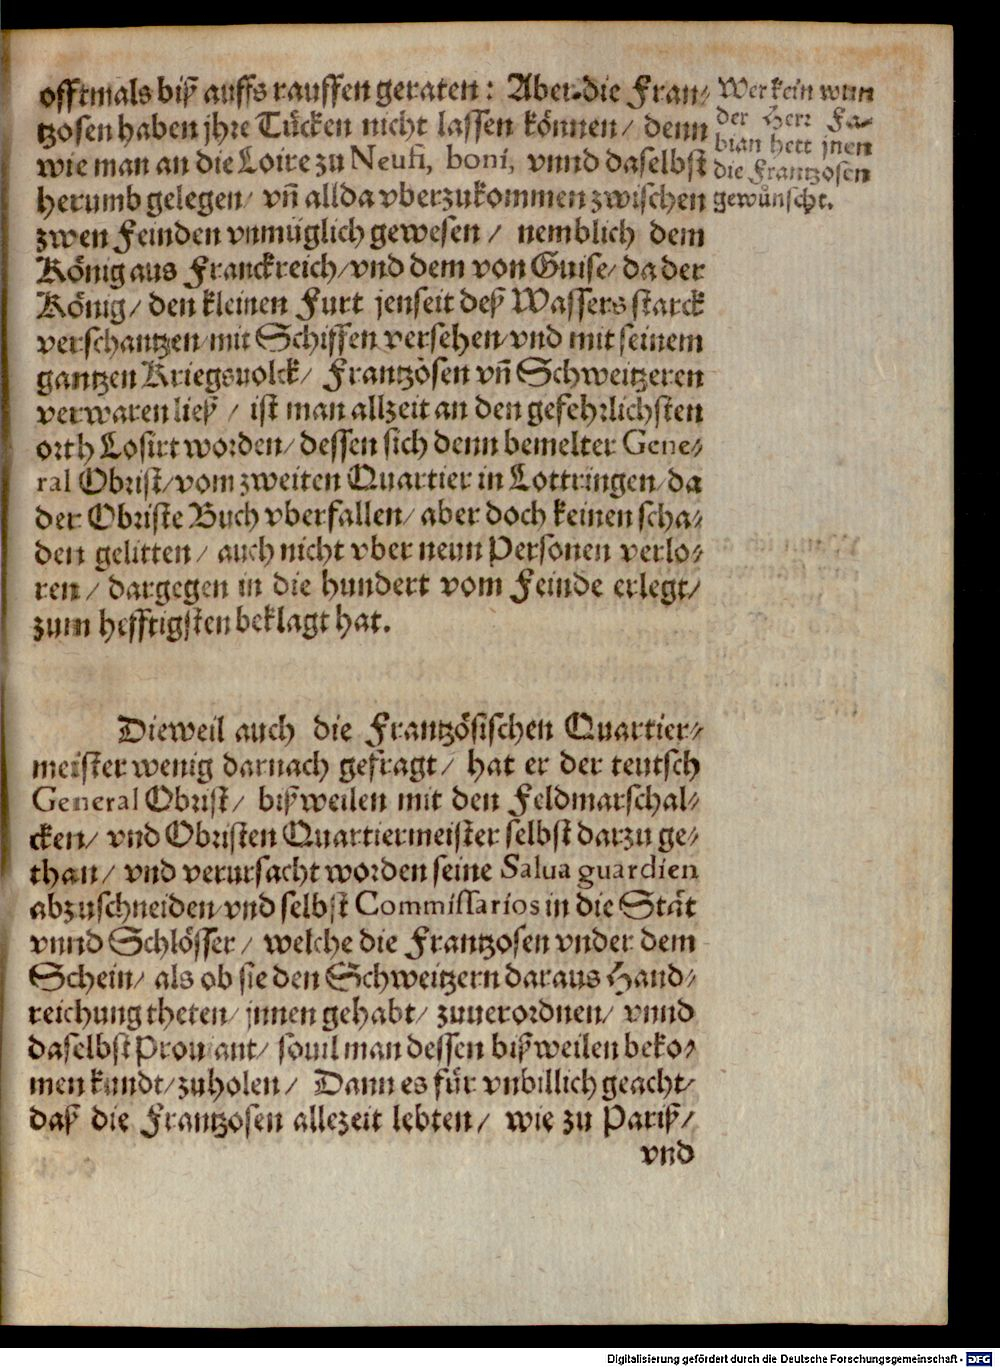 offtmals biß auffs rauffen geraten: Aber die Fran⸗
tzosen haben jhre Tücken nicht lassen können/ denn
wie man an die Loire zu Neufi, boni, vnnd daselbst
herumb gelegen/ vn̄ allda vberzukommen zwischen
zwen Feinden vnmüglich gewesen/ nemblich dem
König aus Franckreich/ vnd dem von Guise/ da der
König/ den kleinen Furt jenseit deß Wassers starck
verschantzen/ mit Schiffen versehen/ vnd mit seinem
gantzen Kriegsuolck/ Frantzösen vn̄ Schweitzeren
verwaren ließ/ ist man allzeit an den gefehrlichsten
orth Losirt worden/ dessen sich denn bemelter Gene⸗
ral Obrist/ vom zweiten Quartier in Lottringen/ da
der Obriste Buch vberfallen/ aber doch keinen scha⸗
den gelitten/ auch nicht vber neun Personen verlo⸗
ren/ dargegen in die hundert vom Feinde erlegt/
zum hefftigsten beklagt hat.
Wer kein wun
der Herr Fa⸗
bian hett jnen
die Frantzosen
gewünscht.
Dieweil auch die Frantzösischen Quartier⸗
meister wenig darnach gefragt/ hat er der teutsch
General Obrist/ bißweilen mit den Feldmarschal⸗
cken/ vnd Obristen Quartiermeister selbst darzu ge⸗
than/ vnd verursacht worden seine Salua guardien
abzuschneiden/ vnd selbst Commissarios in die Stät
vnnd Schlösser/ welche die Frantzosen vnder dem
Schein/ als ob sie den Schweitzern daraus Hand⸗
reichung theten/ jnnen gehabt/ zuuerordnen/ vnnd
daselbst Prouiant/ souil man dessen bißweilen beko⸗
men kundt/ zuholen/ Dann es für vnbillich geacht/
daß die Frantzosen allezeit lebten/ wie zu Pariß/
vnd
Digitalisierung gefördert durch die Deutsche Forschungsgemeinschaft - DFG